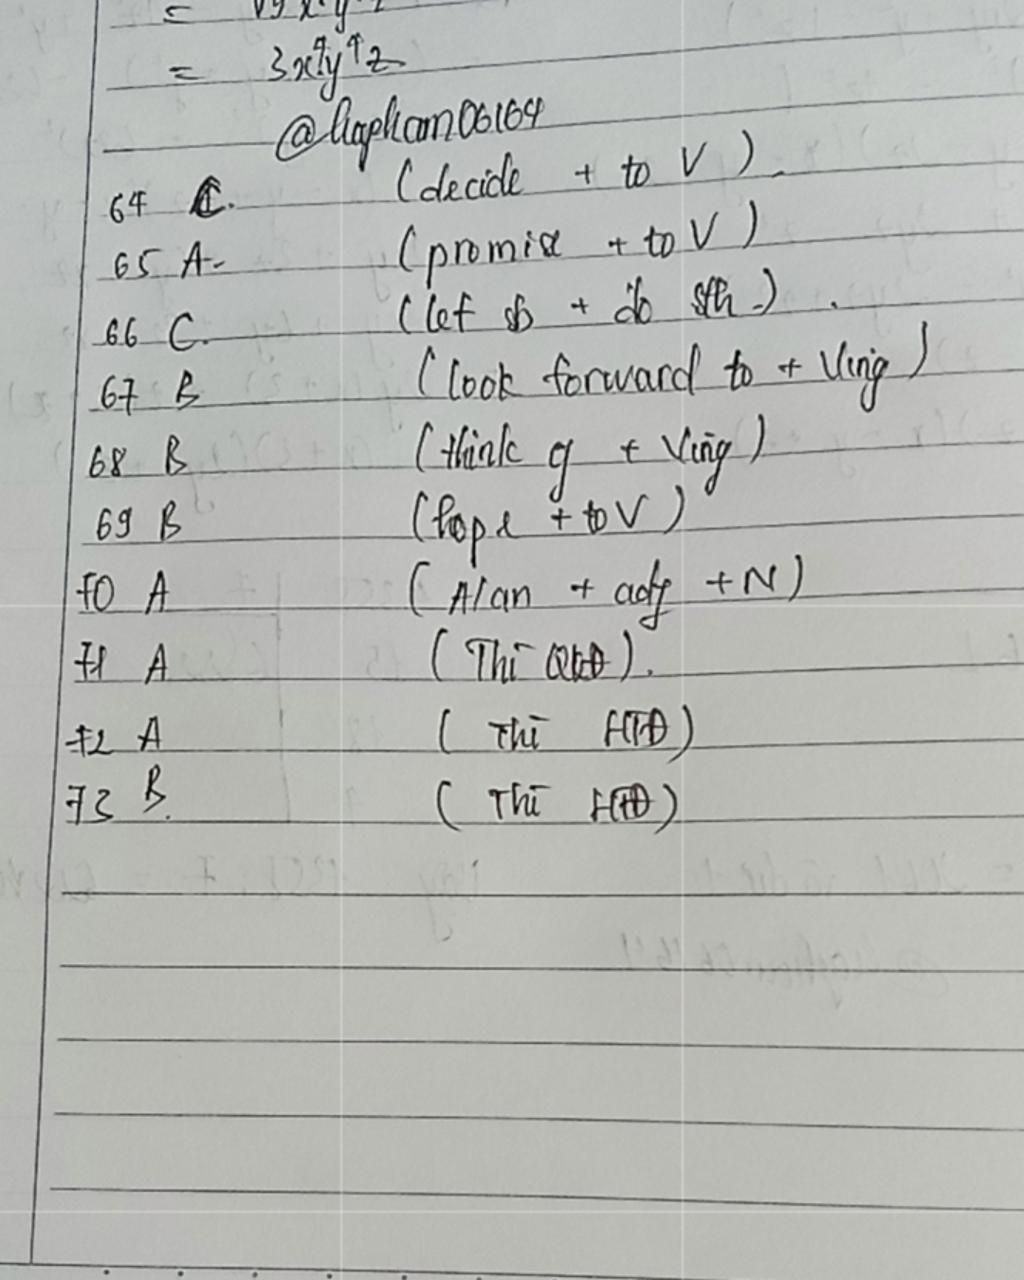 = 3x⁴y⁴z
@hapham06164
64 C. (decide + to V).
65 A. (promise + to V)
66 C. (let sb + do sth.).
67 B (look forward to + Ving)
68 B (think of + Ving)
69 B (hope + to V)
70 A (A/an + adj + N)
71 A (Thì QKĐ).
72 A (Thì HTĐ)
73 B. (Thì HTĐ)